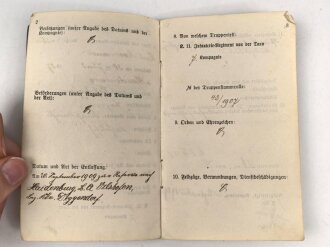 2
Versetzungen (unter Angabe des Datums und der
Kompagnie):
Beförderungen (unter Angabe des Datums und
der Art):
Datum und Art der Entlassung:
Am 18. September 1909 zur Reserve nach
Haidenburg B.A. Vilshofen,
Deggendorf
3
6. Von welchem Truppenteil:
K. 11. Infanterie-Regiment von der Tann
7. Kompagnie
№ der Truppenstammrolle:
43/1907
9. Orden und Ehrenzeichen:
10. Feldzüge, Verwundungen, Dienstbeschädigungen: